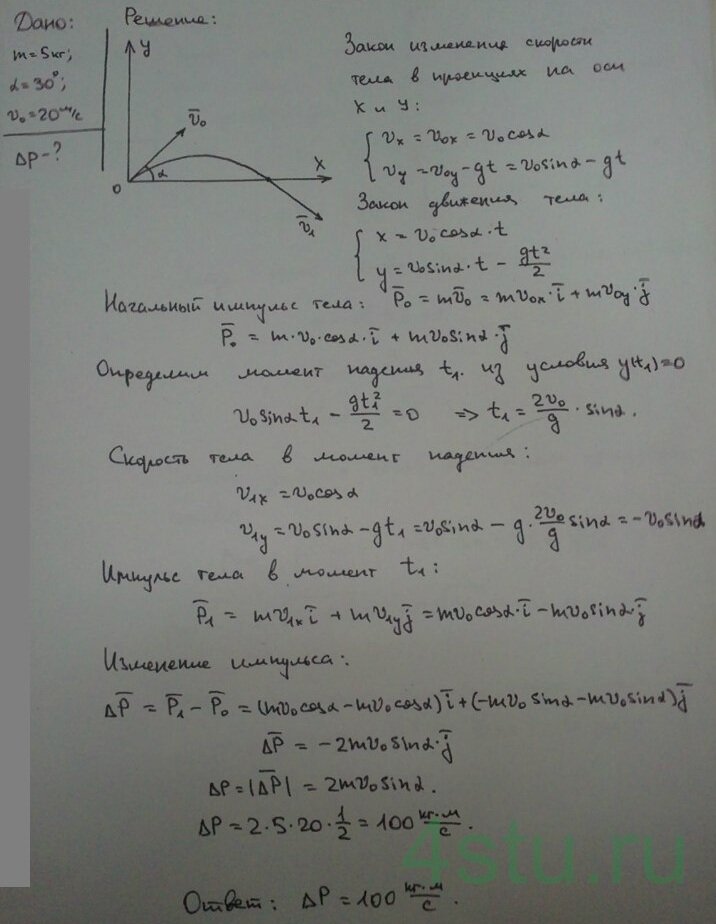 Дано:
m=5кг;
α=30°;
v₀=20м/с
ΔP-?
Решение:
y
v̄₀
α
x
0
v̄₁
Закон изменения скорости
тела в проекциях на оси
x и y:
{ vₓ = v₀ₓ = v₀cosα
vᵧ = v₀ᵧ - gt = v₀sinα - gt
Закон движения тела:
{ x = v₀cosα·t
y = v₀sinα·t - gt²/2
Начальный импульс тела: P̄₀ = mv̄₀ = mv₀ₓ·ī + mv₀ᵧ·j̄
P̄₀ = m·v₀·cosα·ī + mv₀sinα·j̄
Определим момент падения t₁ из условия y(t₁)=0
v₀sinαt₁ - gt₁²/2 = 0 => t₁ = 2v₀/g · sinα.
Скорость тела в момент падения:
v₁ₓ = v₀cosα
v₁ᵧ = v₀sinα - gt₁ = v₀sinα - g·2v₀/g sinα = -v₀sinα
Импульс тела в момент t₁:
P̄₁ = mv₁ₓī + mv₁ᵧj̄ = mv₀cosα·ī - mv₀sinα·j̄
Изменение импульса:
ΔP̄ = P̄₁ - P̄₀ = (mv₀cosα - mv₀cosα)ī + (-mv₀sinα - mv₀sinα)j̄
ΔP̄ = -2mv₀sinα·j̄
ΔP = |ΔP̄| = 2mv₀sinα.
ΔP = 2·5·20·1/2 = 100 кг·м/с.
4stu.ru
Ответ: ΔP = 100 кг·м/с.